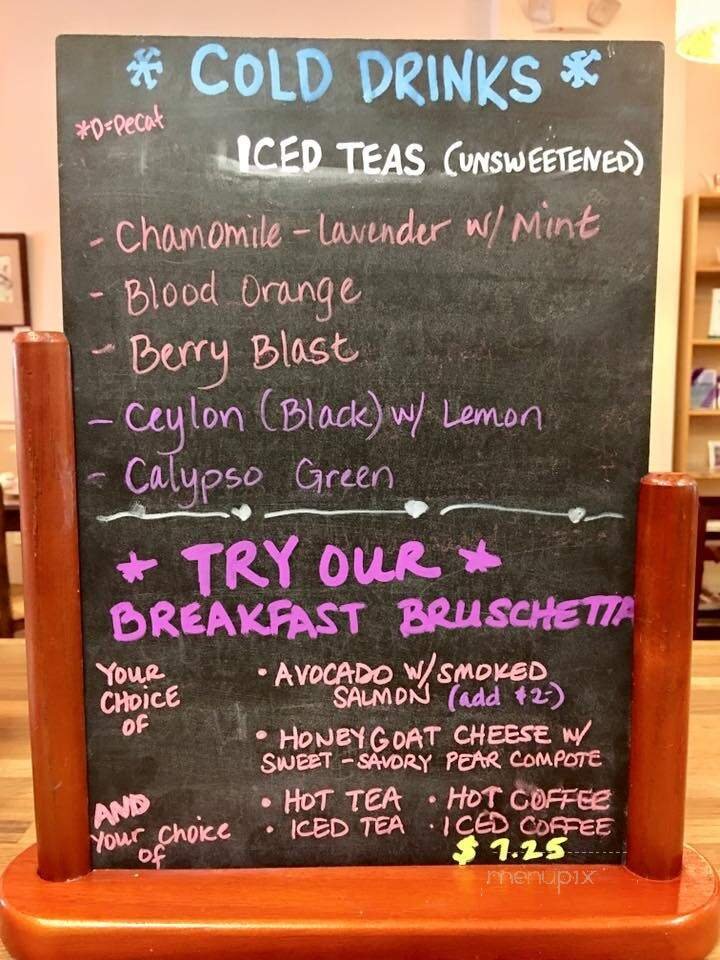 * COLD DRINKS *
*D=Decaf
ICED TEAS (UNSWEETENED)
- Chamomile - Lavender w/ Mint
- Blood Orange
- Berry Blast
- Ceylon (Black) w/ Lemon
- Calypso Green
* TRY OUR *
BREAKFAST BRUSCHETTA
YOUR CHOICE OF
• AVOCADO W/ SMOKED
SALMON (add $2-)
• HONEY GOAT CHEESE W/
SWEET - SAVORY PEAR COMPOTE
AND Your Choice of
• HOT TEA • HOT COFFEE
• ICED TEA • ICED COFFEE
$ 7.25
menupix